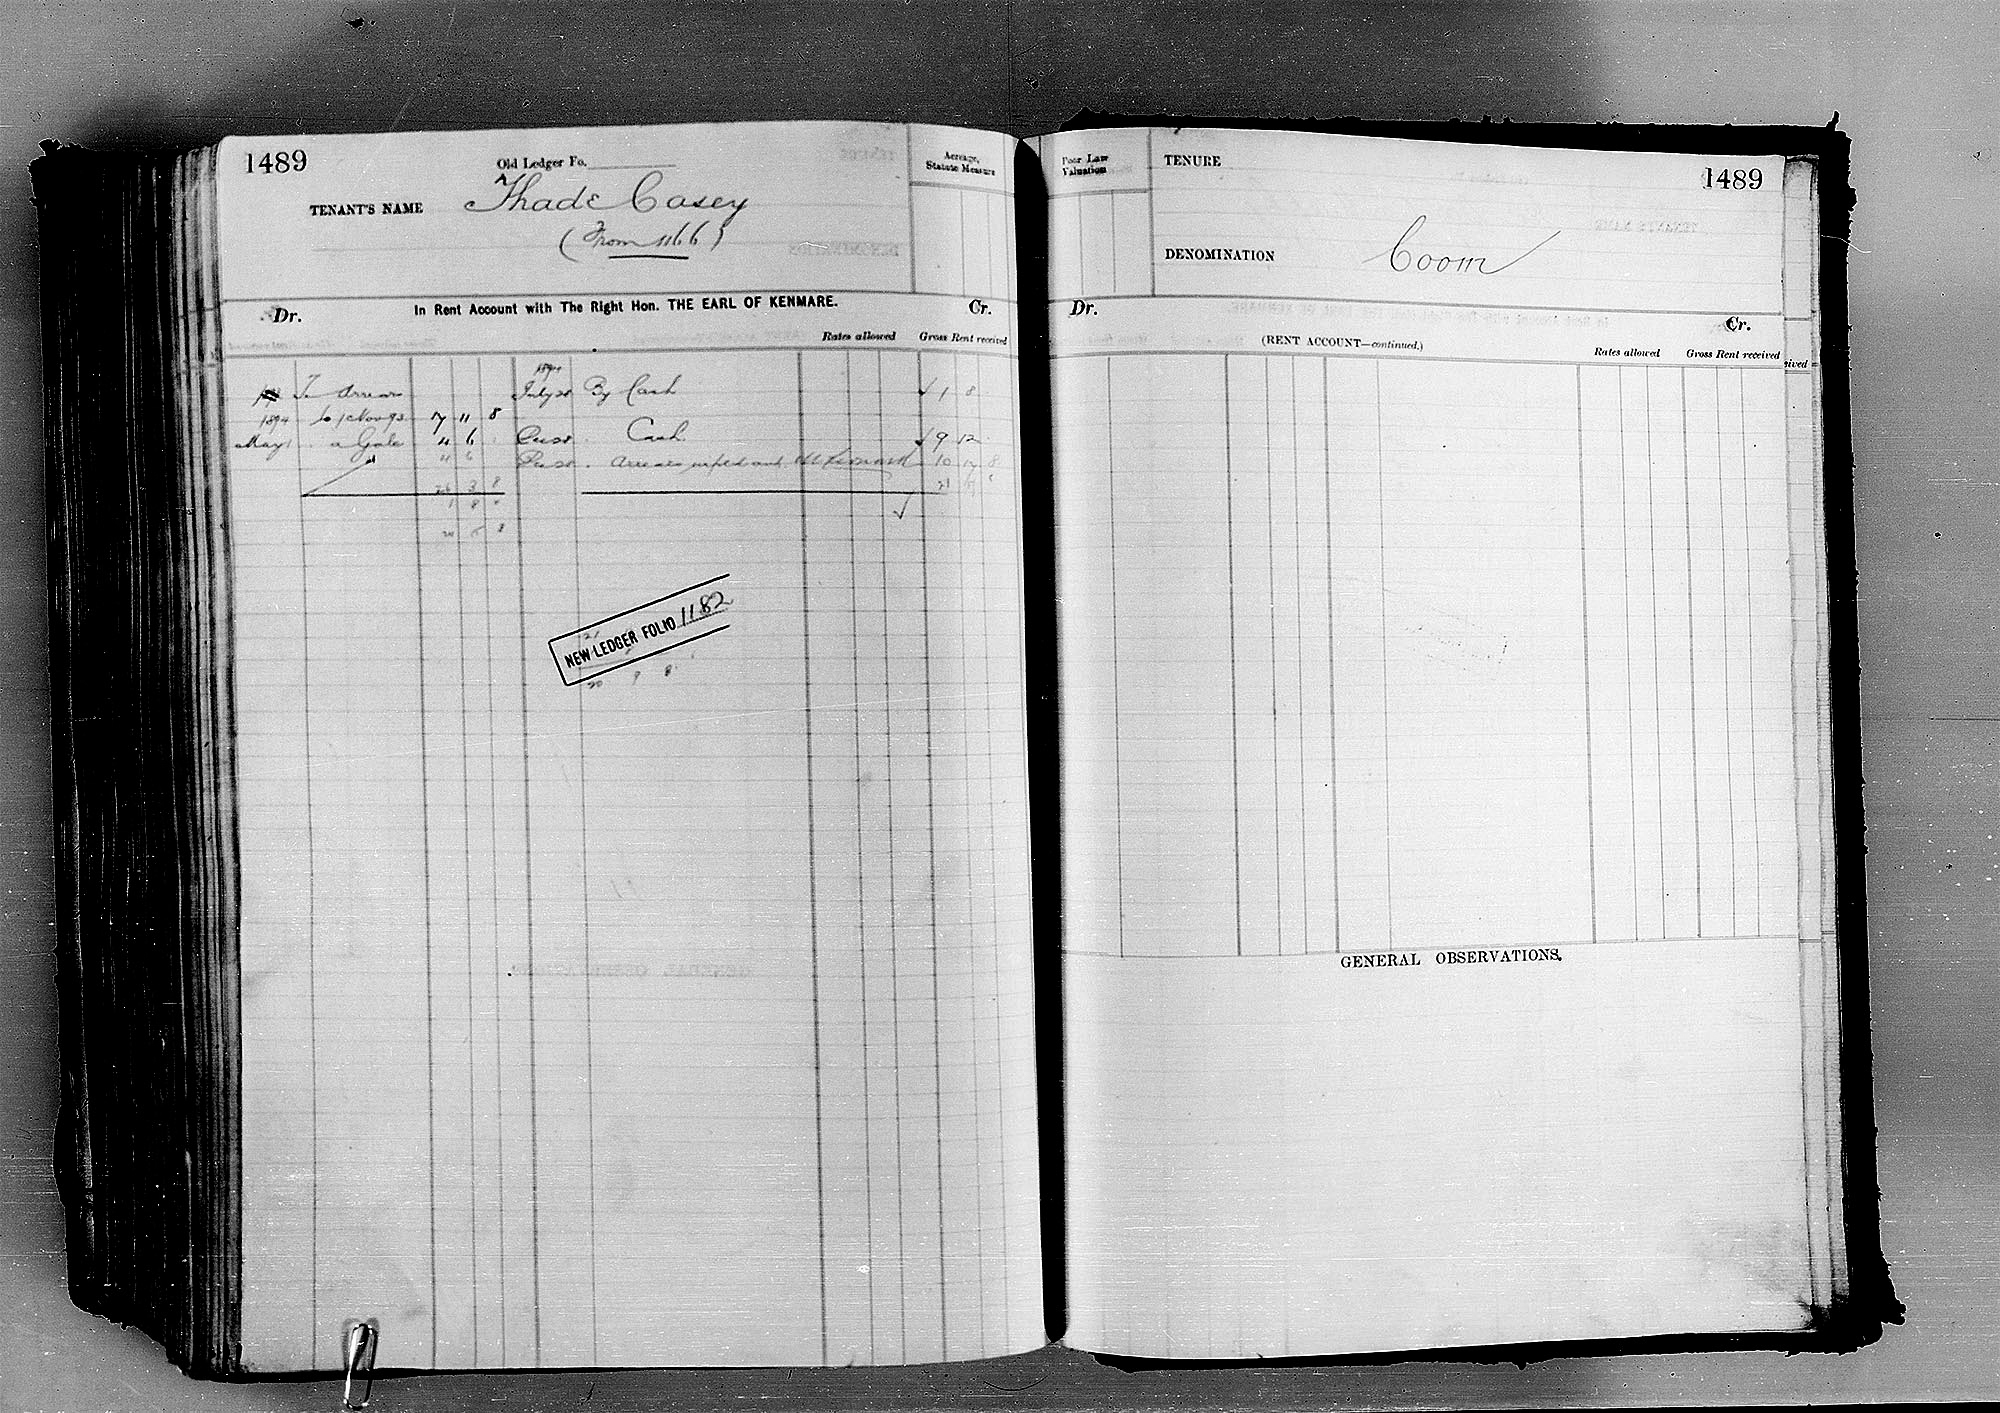 1489
Old Ledger Fo.
TENANT'S NAME Thade Casey
(From 1166)
Acreage, Statute Measure
Dr. In Rent Account with The Right Hon. THE EARL OF KENMARE. Cr.
Rates allowed Gross Rent received
1894
To Arrears July 28 By Cash √ 1 8
1894 to 1 Nov 93 17 11 8
May 1 a Gale 4 6 Cash √ 9 12
" 4 6 Arrears wiped out 10 17 8
26 3 8 21 17 8
1 8
√
NEW LEDGER FOLIO 1182
Poor Law Valuation
TENURE
1489
DENOMINATION Coom
Dr. Cr.
(RENT ACCOUNT—continued.)
Rates allowed Gross Rent received
GENERAL OBSERVATIONS.